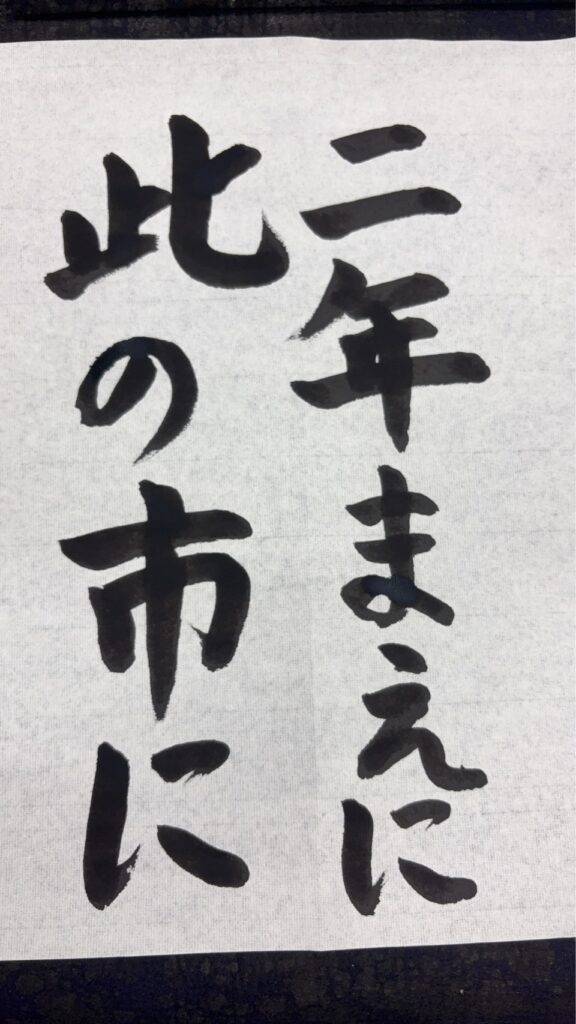 二年まえに
此の市に